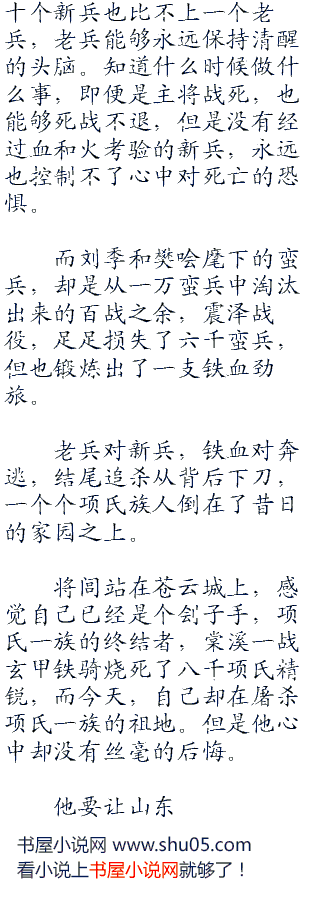 十个新兵也比不上一个老
兵，老兵能够永远保持清醒
的头脑。知道什么时候做什
么事，即便是主将战死，也
能够死战不退，但是没有经
过血和火考验的新兵，永远
也控制不了心中对死亡的恐
惧。
而刘季和樊哙麾下的蛮
兵，却是从一万蛮兵中淘汰
出来的百战之余，震泽战
役，足足损失了六千蛮兵，
但也锻炼出了一支铁血劲
旅。
老兵对新兵，铁血对奔
逃，结尾追杀从背后下刀，
一个个项氏族人倒在了昔日
的家园之上。
将闾站在苍云城上，感
觉自己已经是个刽子手，项
氏一族的终结者，棠溪一战
玄甲铁骑烧死了八千项氏精
锐，而今天，自己却在屠杀
项氏一族的祖地。但是他心
中却没有丝毫的后悔。
他要让山东
书屋小说网 www.shu05.com
看小说上书屋小说网就够了！